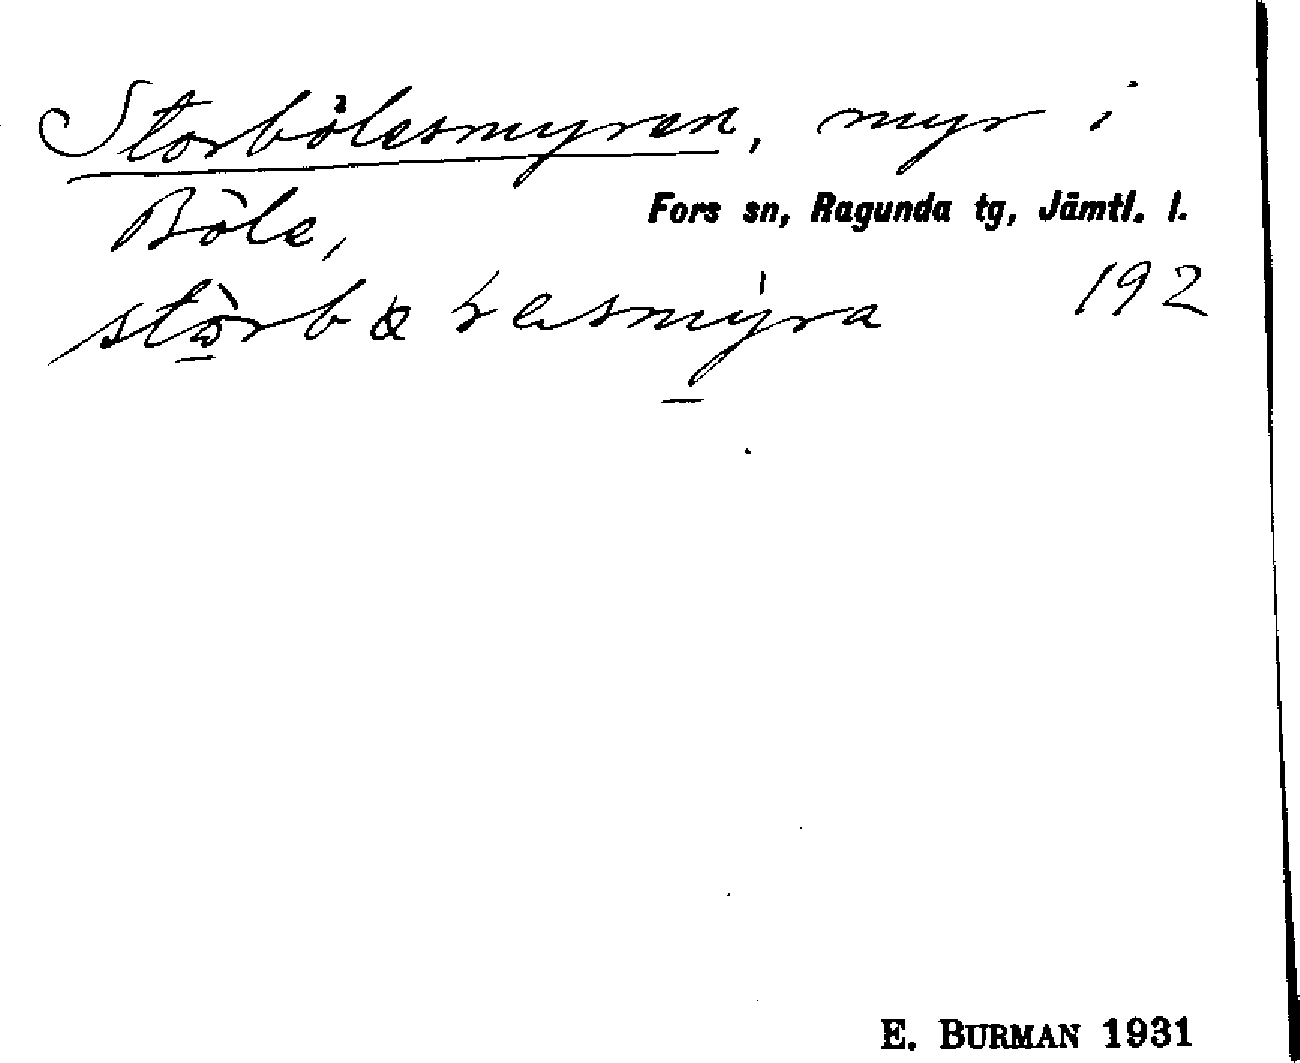 Storbölesmyren, myr i
Böle,
Fors sn, Ragunda tg, Jämtl. l.
192
E. BURMAN 1931